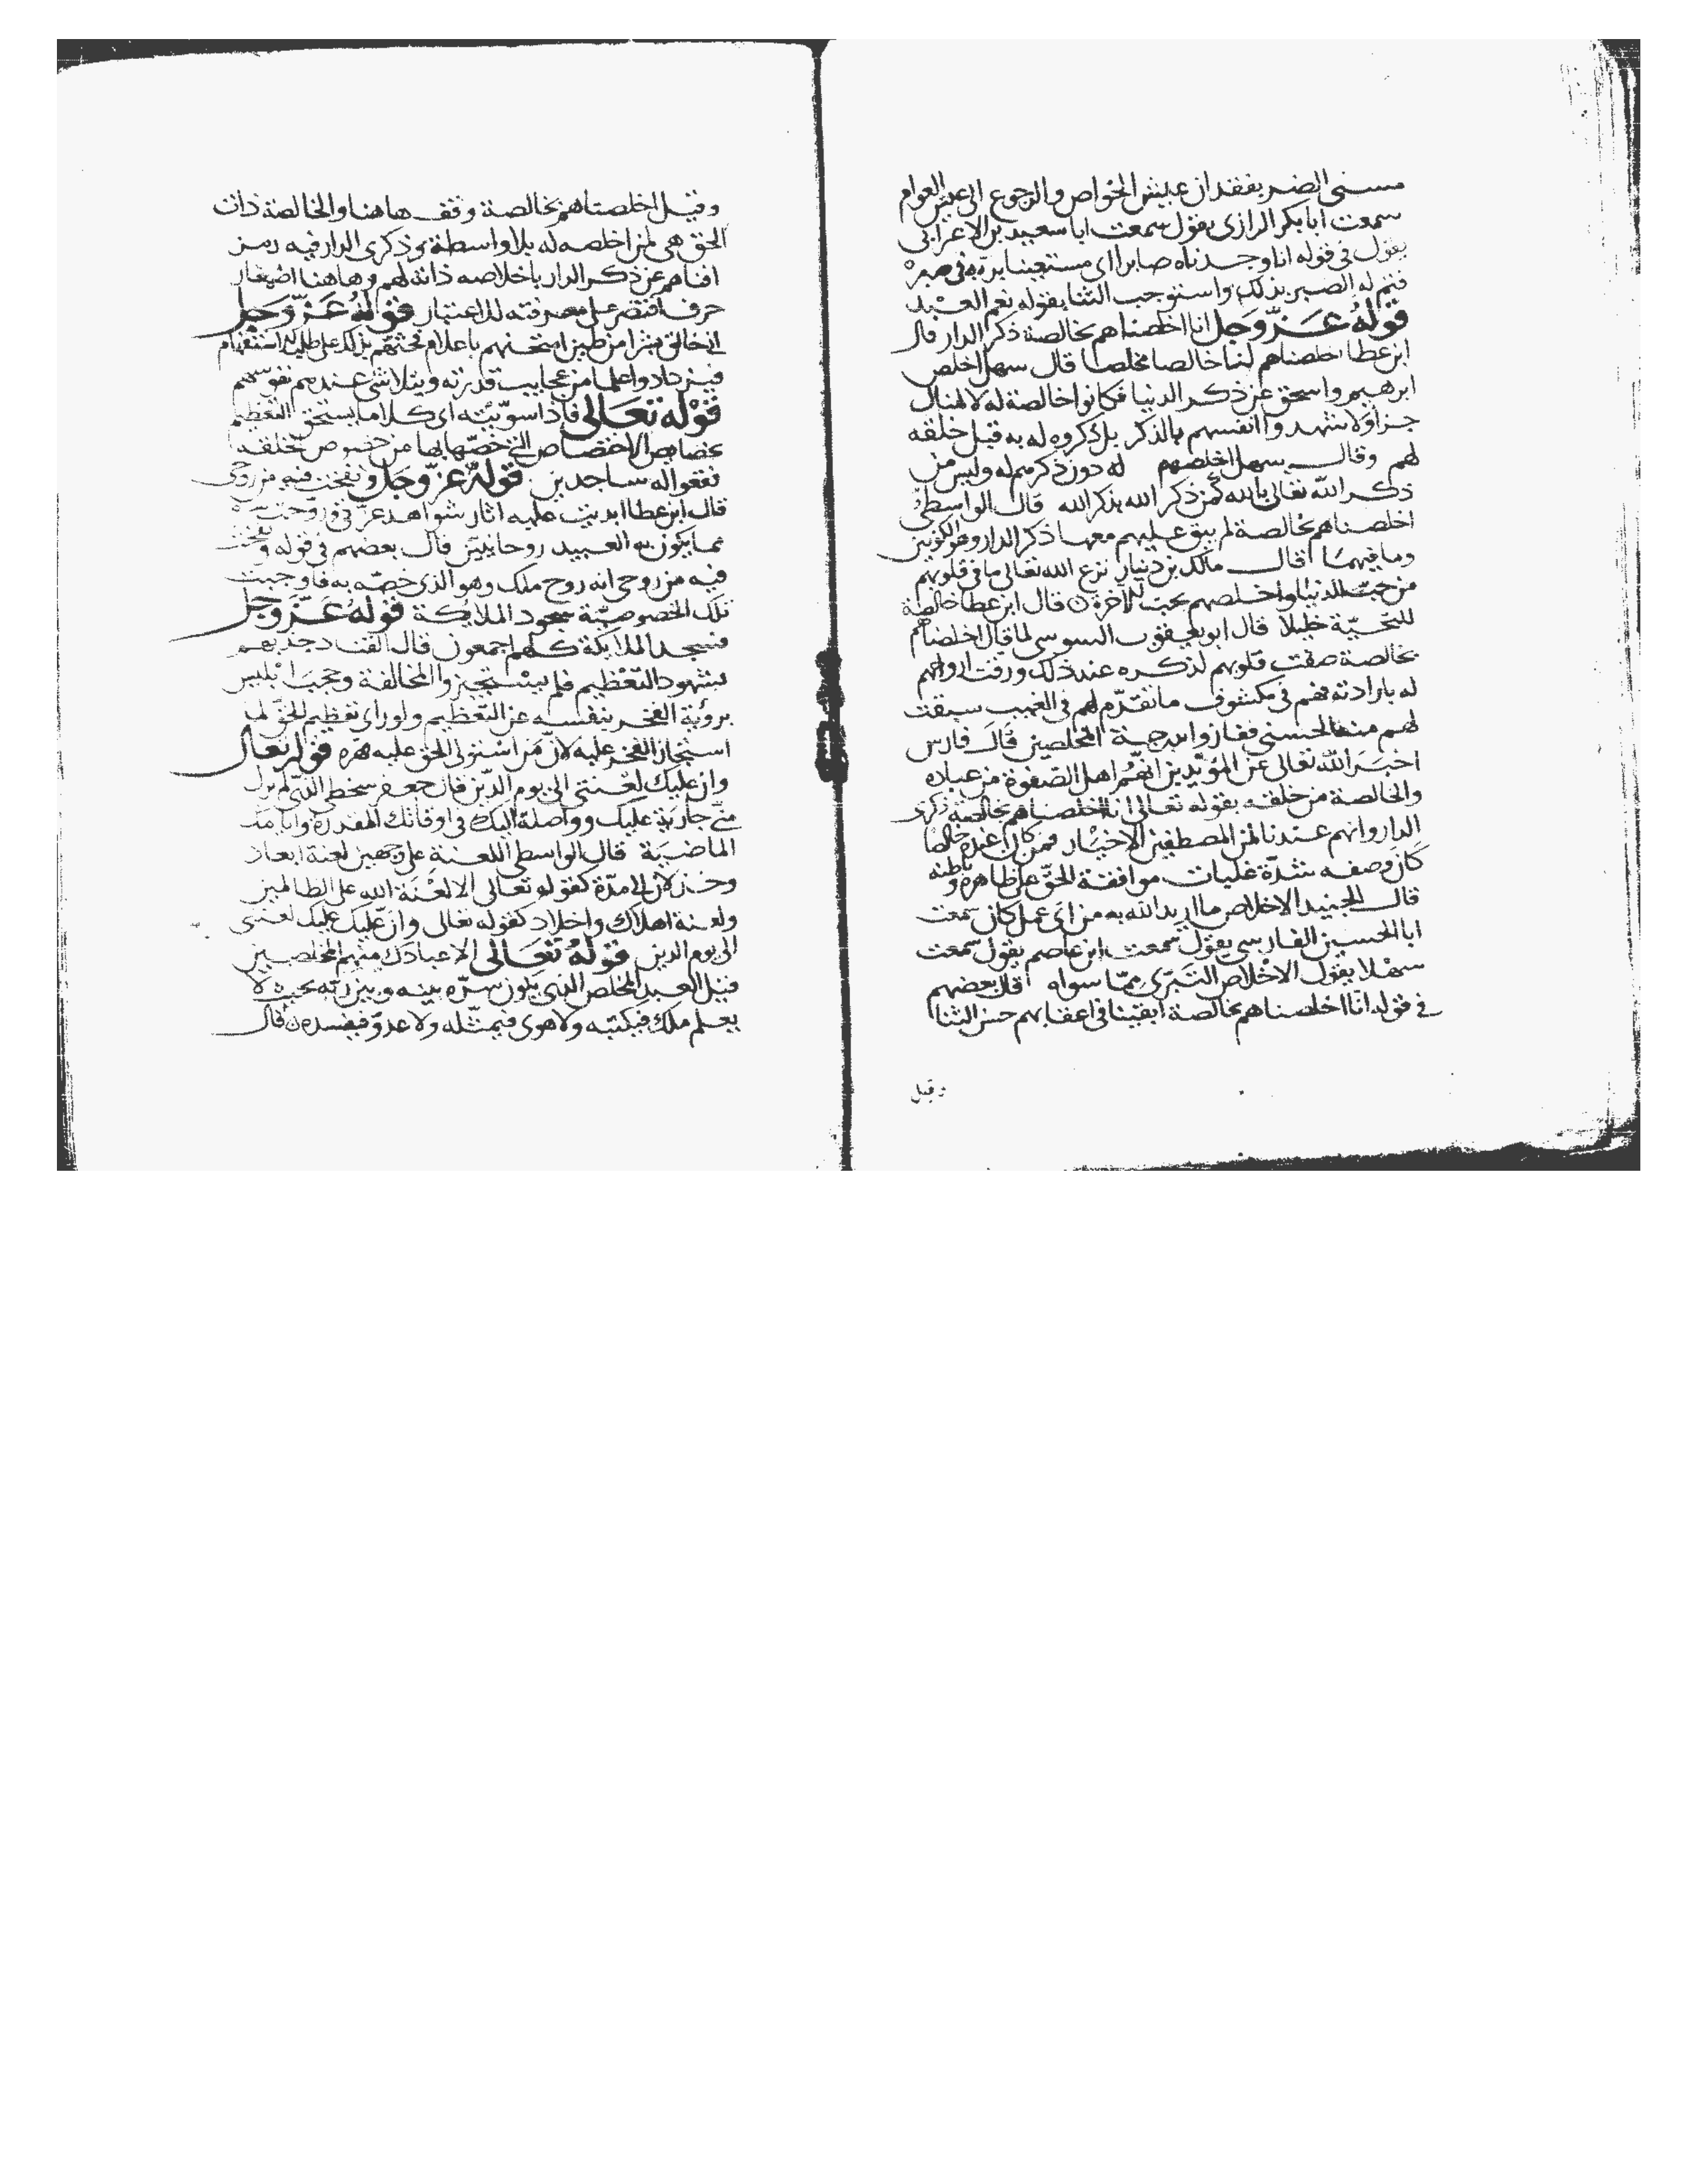 مسني الضر بفقدان عيش الخواص والرجوع الى عيش العوام
سمعت ابا بكر الرازي يقول سمعت ابا سعيد بن الاعرابي
يقول في قوله انا وجدناه صابرا اي مستعينا بربه في صبره
فتم له الصبر بذلك واستوجب الثنا بقوله نعم العبد
قوله عز وجل انا اخلصناهم بخالصة ذكر الدار قال
ابن عطا اخلصناهم لنا خالصا مخلصا قال سهل اخلص
ابرهيم واسحق عن ذكر الدنيا فكانوا خالصة له لا لمنال
جزا ولا شهدوا انفسهم بالذكر بل ذكروه له به قبل خلقه
لهم وقال سهل اخلصهم له دون ذكرهم له وليس من
ذكر الله تعالى بالله كمن ذكر الله بذكر الله قال الواسطي
اخلصناهم بخالصة لم يبق عليهم معها ذكر الدار وهو الكونين
وما فيهما قال مالك بن دينار نزع الله تعالى ما في قلوبهم
من حب الدنيا واخلصهم بحب الاخرة قال ابن عطا خالصة
للتحية خليلا قال ابو يعقوب السوسي لما قال اخلصناهم
بخالصة صفت قلوبهم لذكره عند ذلك ورقت ارواحهم
له بارادته فهم في مكشوف ما تقدم لهم في الغيب سبقت
لهم منه الحسنى ففازوا بدرجة المخلصين قال فارس
اخبر الله تعالى عن المؤيدين انهم اهل الصفوة من عباده
والخالصة من خلقه بقوله تعالى انا اخلصناهم بخالصة ذكرى
الدار وانهم عندنا لمن المصطفين الاخيار فمن كان عنده خالصا
كان وصفه شدة غلبات موافقة الحق على ظاهره وباطنه
قال الجنيد الاخلاص ما اريد الله به من اي عمل كان سمعت
ابا الحسين الفارسي يقول سمعت ابن عاصم يقول سمعت
سهلا يقول الاخلاص التبري مما سواه قال بعضهم
في قوله انا اخلصناهم بخالصة ابقينا في اعقابهم حسن الثنا
وقيل
وقيل اخلصناهم بخالصة وقف هاهنا والخالصة ذات
الحق هي لمن اخلصه له بلا واسطة وذكرى الدار فيه رمز
افناهم عن ذكر الدار باخلاصه ذاته لهم وهاهنا اضمار
حرف اقتصر على معرفته للاعتبار قوله عز وجل
اني خالق بشرا من طين امتحنهم باعلام فحثهم بذلك على طلب الاستفهام
فيزدادوا علما من عجايب قدرته ويتلاشى عندهم نفوسهم
قوله تعالى فاذا سويته اي كلاما يستحق التعظيم
خصايص الاختصاص التي خصها بها من خصوص الخلقة
فقعوا له ساجدين قوله عز وجل ونفخت فيه من روحي
قال ابن عطا ابديت عليه اثار شواهد عزي وروحت سره
مما يكون به العبيد روحانيين قال بعضهم في قوله ونفخت
فيه من روحي انه روح ملك وهو الذي خصه به فاوجبت
تلك الخصوصية سجود الملايكة قوله عز وجل
فسجد الملايكة كلهم اجمعون قال القناد جذبهم
بشهود التعظيم فلم يستجيزوا المخالفة وحجب ابليس
برؤية الفخر بنفسه عن التعظيم ولو راى تعظيم الحق لما
استجاز الفخر عليه لان من استولى الحق عليه قهره قوله تعالى
وان عليك لعنتي الى يوم الدين قال جعفر سخطي الذي لم يزل
مني جارية عليك وواصلة اليك في اوقاتك المقدرة وايامك
الماضية قال الواسطي اللعنة على وجهين لعنة ابعاد
وخذلان الى مدة كقوله تعالى الا لعنة الله على الظالمين
ولعنة اهلاك واخلاد كقوله تعالى وان عليك لعنتي
الى يوم الدين قوله تعالى الا عبادك منهم المخلصين
قيل العبد المخلص الذي يكون سره بينه وبين ربه بحيث لا
يعلم ملك فيكتبه ولا هوى فيمثله ولا عدو فيفسده قال